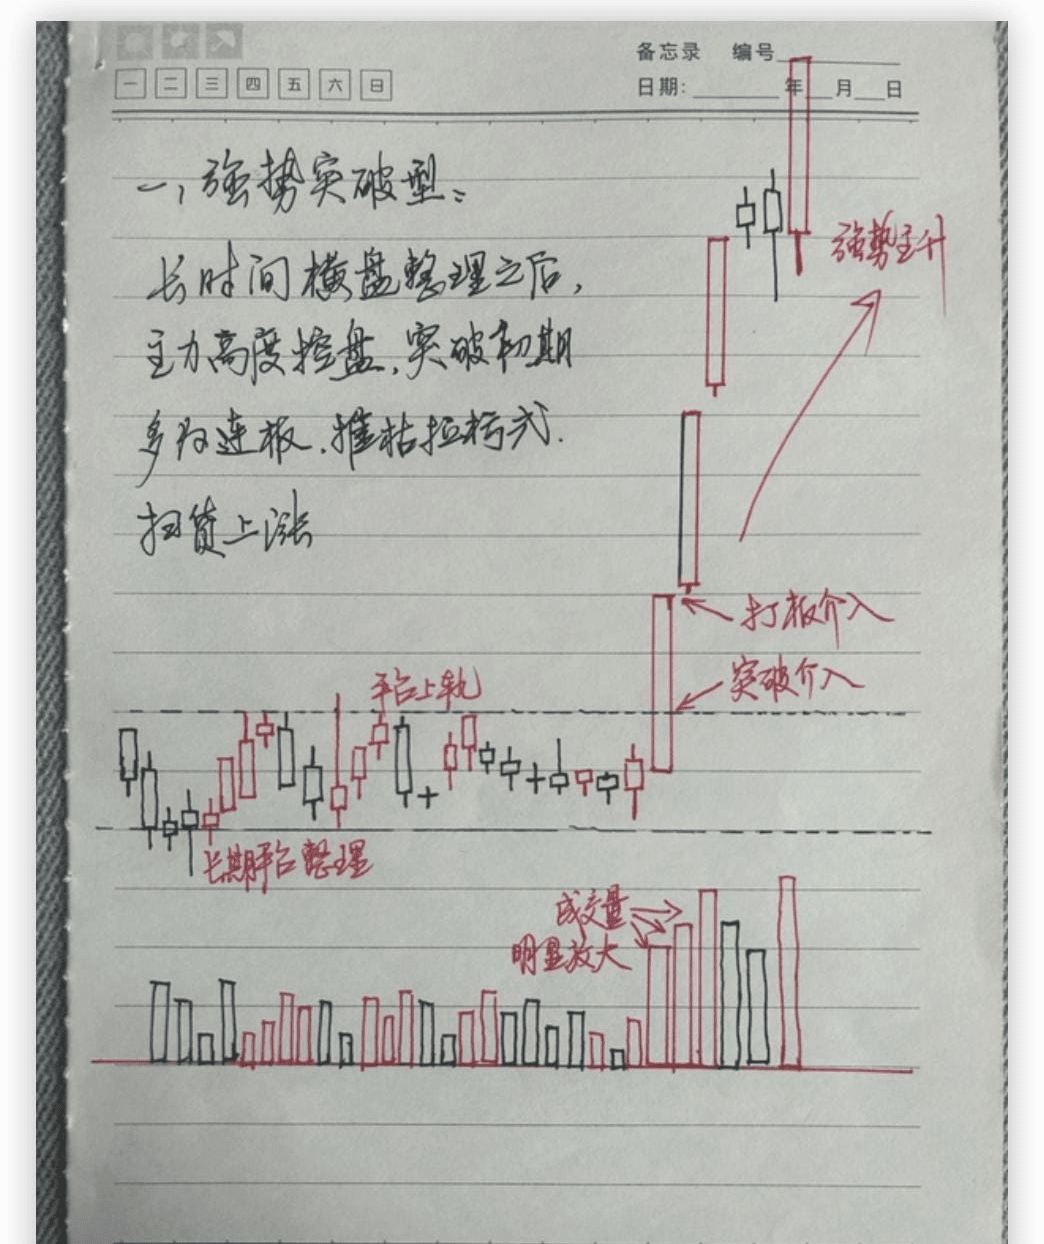 备忘录 编号
日期: 年 月 日
一 二 三 四 五 六 日
一、强势突破型：
长时间横盘整理之后，
主力高度控盘，突破初期
多为连板，摧枯拉朽式
扫货上涨
强势主升
打板介入
突破介入
平台上轨
长期平台整理
成交量
明显放大